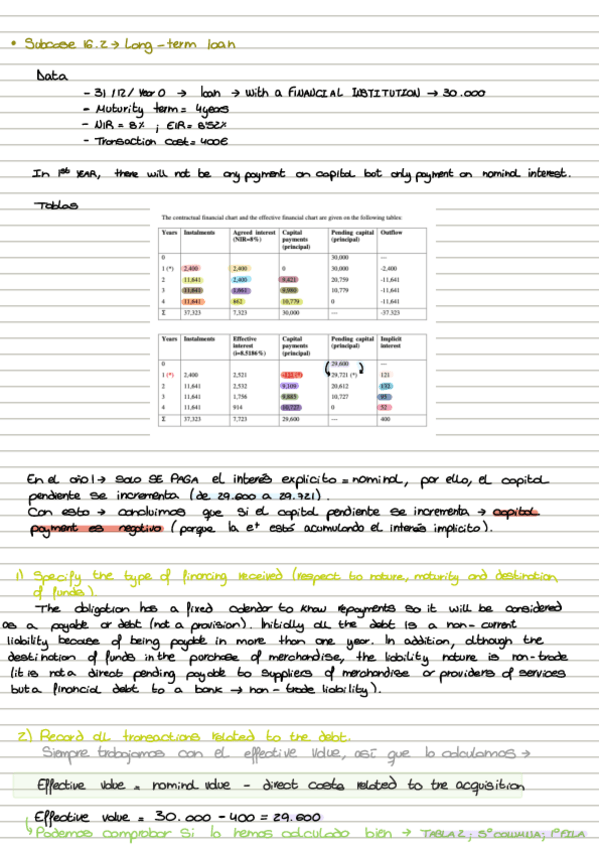 • Subcase 16.2 → Long-term loan
Data
- 31/12/Year 0 → loan → with a FINANCIAL INSTITUTION → 30.000
- Muturity term = 4years
- NIR = 8% ; EIR = 8'52%
- Transaction cost = 400€
In 1st YEAR, there will not be any payment on capital but only payment on nominal interest.
Tablas
The contractual financial chart and the effective financial chart are given on the following tables:
Years Instalments Agreed interest (NIR=8%) Capital payments (principal) Pending capital (principal) Outflow
0 30,000 ---
1 (*) 2,400 2,400 0 30,000 -2,400
2 11,641 2,400 9,421 20,759 -11,641
3 11,641 1,661 9,980 10,779 -11,641
4 11,641 862 10,779 0 -11,641
Σ 37,323 7,323 30,000 --- -37.323
Years Instalments Effective interest (i=8.5186%) Capital payments (principal) Pending capital (principal) Implicit interest
0 29,600 ---
1 (*) 2,400 2,521 -121 (*) 29,721 (*) 121
2 11,641 2,532 9,109 20,612 132
3 11,641 1,756 9,885 10,727 95
4 11,641 914 10,727 0 52
Σ 37,323 7,723 29,600 --- 400
En el año 1 → SOLO SE PAGA el interés explicito = nominal, por ello, el capital
pendiente se incrementa (de 29.600 a 29.721).
Con esto → concluimos que si el capital pendiente se incrementa → capital
payment es negativo (porque la eª está acumulando el interés implícito).
1) Specify the type of financing received (respect to nature, maturity and destination
of funds)
The obligation has a fixed calendar to know repayments so it will be considered
as a payable or debt (not a provision). Initially all the debt is a non-current
liability because of being payable in more than one year. In addition, although the
destination of funds in the purchase of merchandise, the liability nature is non-trade
(it is not a direct pending payable to suppliers of merchandise or providers of services
but a financial debt to a bank → non-trade liability).
2) Record all transactions related to the debt.
Siempre trabajamos con el effective value, así que lo calculamos →
Effective value = nominal value - direct costs related to the acquisition
Effective value = 30.000 - 400 = 29.600
↳ Podemos comprobar si lo hemos calculado bien → TABLA 2; 5ª COLUMNA; 1ª FILA